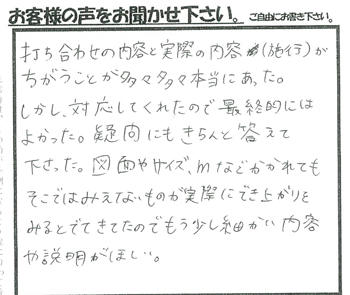 お客様の声をお聞かせ下さい。ご自由にお書き下さい。
打ち合わせの内容と実際の内容(施行)が
ちがうことが多々多々本当にあった。
しかし、対応してくれたので最終的には
よかった。疑問にもきちんと答えて
下さった。図面やサイズ、mなどかかれても
そこではみえないものが実際にでき上がりを
みるとでてきてたのでもう少し細かい内容
や説明がほしい。